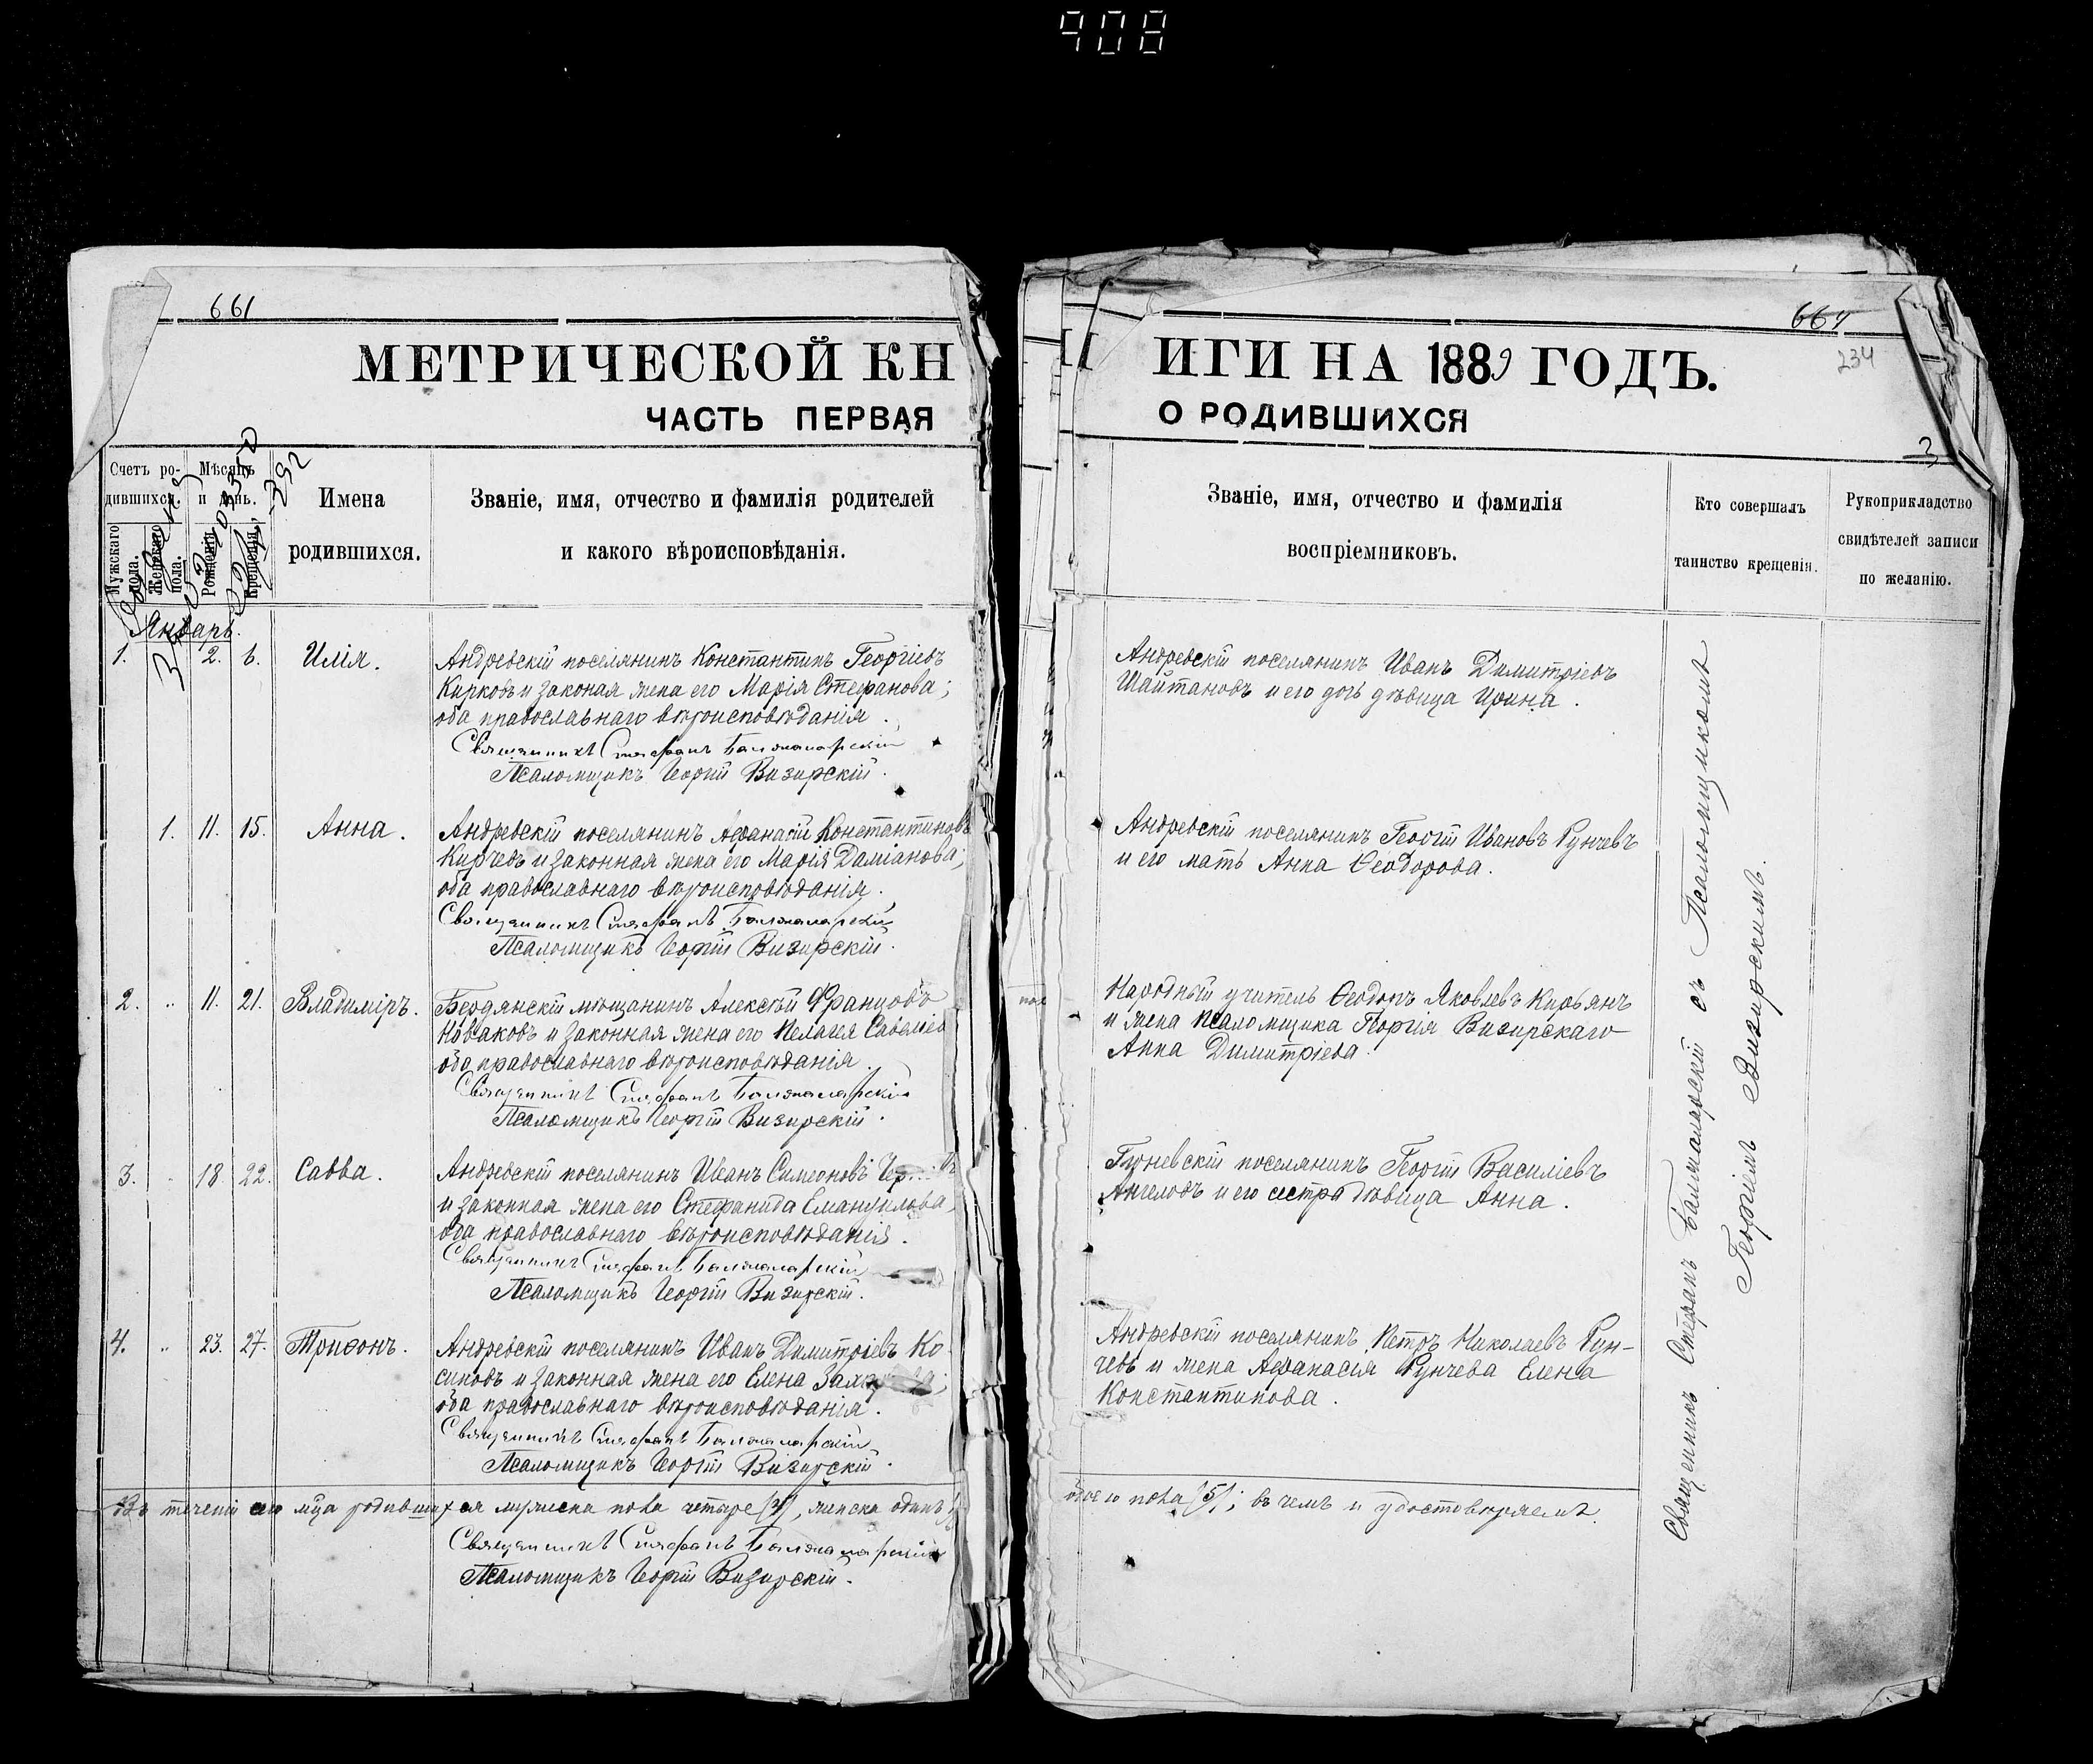 908
661
МЕТРИЧЕСКОЙ КН
ЧАСТЬ ПЕРВАЯ
Счетъ ро-
дившихся.
Мужскаго пола.
Женскаго пола.
Мѣсяцъ
и день.
Рожденія.
Крещенія.
Имена
родившихся.
Званіе, имя, отчество и фамилія родителей
и какого вѣроисповѣданія.
Январь.
1. 2. 6. Илія.
Андревскій поселянинъ Константинъ Георгіевъ
Кирковъ и законая жена его Марія Стефанова;
оба православнаго вѣроисповѣданія.
Священникъ Стефанъ
Псаломщикъ Георгій Визирскій.
1. 11. 15. Анна.
Андревскій поселянинъ Афанасій Константиновъ
Кирчевъ и законная жена его Марія Даміанова;
оба православнаго вѣроисповѣданія.
Священникъ Стефанъ
Псаломщикъ Георгій Визирскій.
2. " 11. 21. Владиміръ.
Бердянскій мѣщанинъ Алексѣй Францовъ
Новаковъ и законная жена его Пелагія
оба православнаго вѣроисповѣданія.
Священникъ Стефанъ
Псаломщикъ Георгій Визирскій.
3. 18. 22. Савва.
Андревскій поселянинъ Иванъ Симеоновъ
и законная жена его Стефанида Емануилова,
оба православнаго вѣроисповѣданія.
Священникъ Стефанъ
Псаломщикъ Георгій Визирскій.
4. " 23. 27. Трифонъ.
Андревскій поселянинъ Иванъ Димитріевъ Ко-
синовъ и законная жена его Елена
оба православнаго вѣроисповѣданія.
Священникъ Стефанъ
Псаломщикъ Георгій Визирскій.
Въ теченіи сего мца родившихся мужеска пола четыре (4), женска одинъ
Священникъ Стефанъ
Псаломщикъ Георгій Визирскій.
664
234
ИГИ НА 1889 ГОДЪ.
О РОДИВШИХСЯ
3
Званіе, имя, отчество и фамилія
воспріемниковъ.
Кто совершалъ
таинство крещенія.
Рукоприкладство
свидѣтелей записи
по желанію.
Андревскій поселянинъ Иванъ Димитріевъ
Шайтановъ и его дочь дѣвица Ирина.
Андревскій поселянинъ Георгій Ивановъ Рунчевъ
и его мать Анна Ѳеодорова.
Народный учитель Ѳеодоръ Яковлевъ Кирьянъ
и жена псаломщика Георгія Визирскаго
Анна Димитріева.
поселянинъ Георгій Василіевъ
Ангеловъ и его сестра дѣвица Анна.
Андревскій поселянинъ Петръ Николаевъ Рун-
чевъ и жена Афанасія Рунчева Елена
Константинова.
обоего пола (5); въ чемъ и удостовѣряемъ.
Священникъ Стефанъ съ Псаломщикомъ
Георгіемъ Визирскимъ.